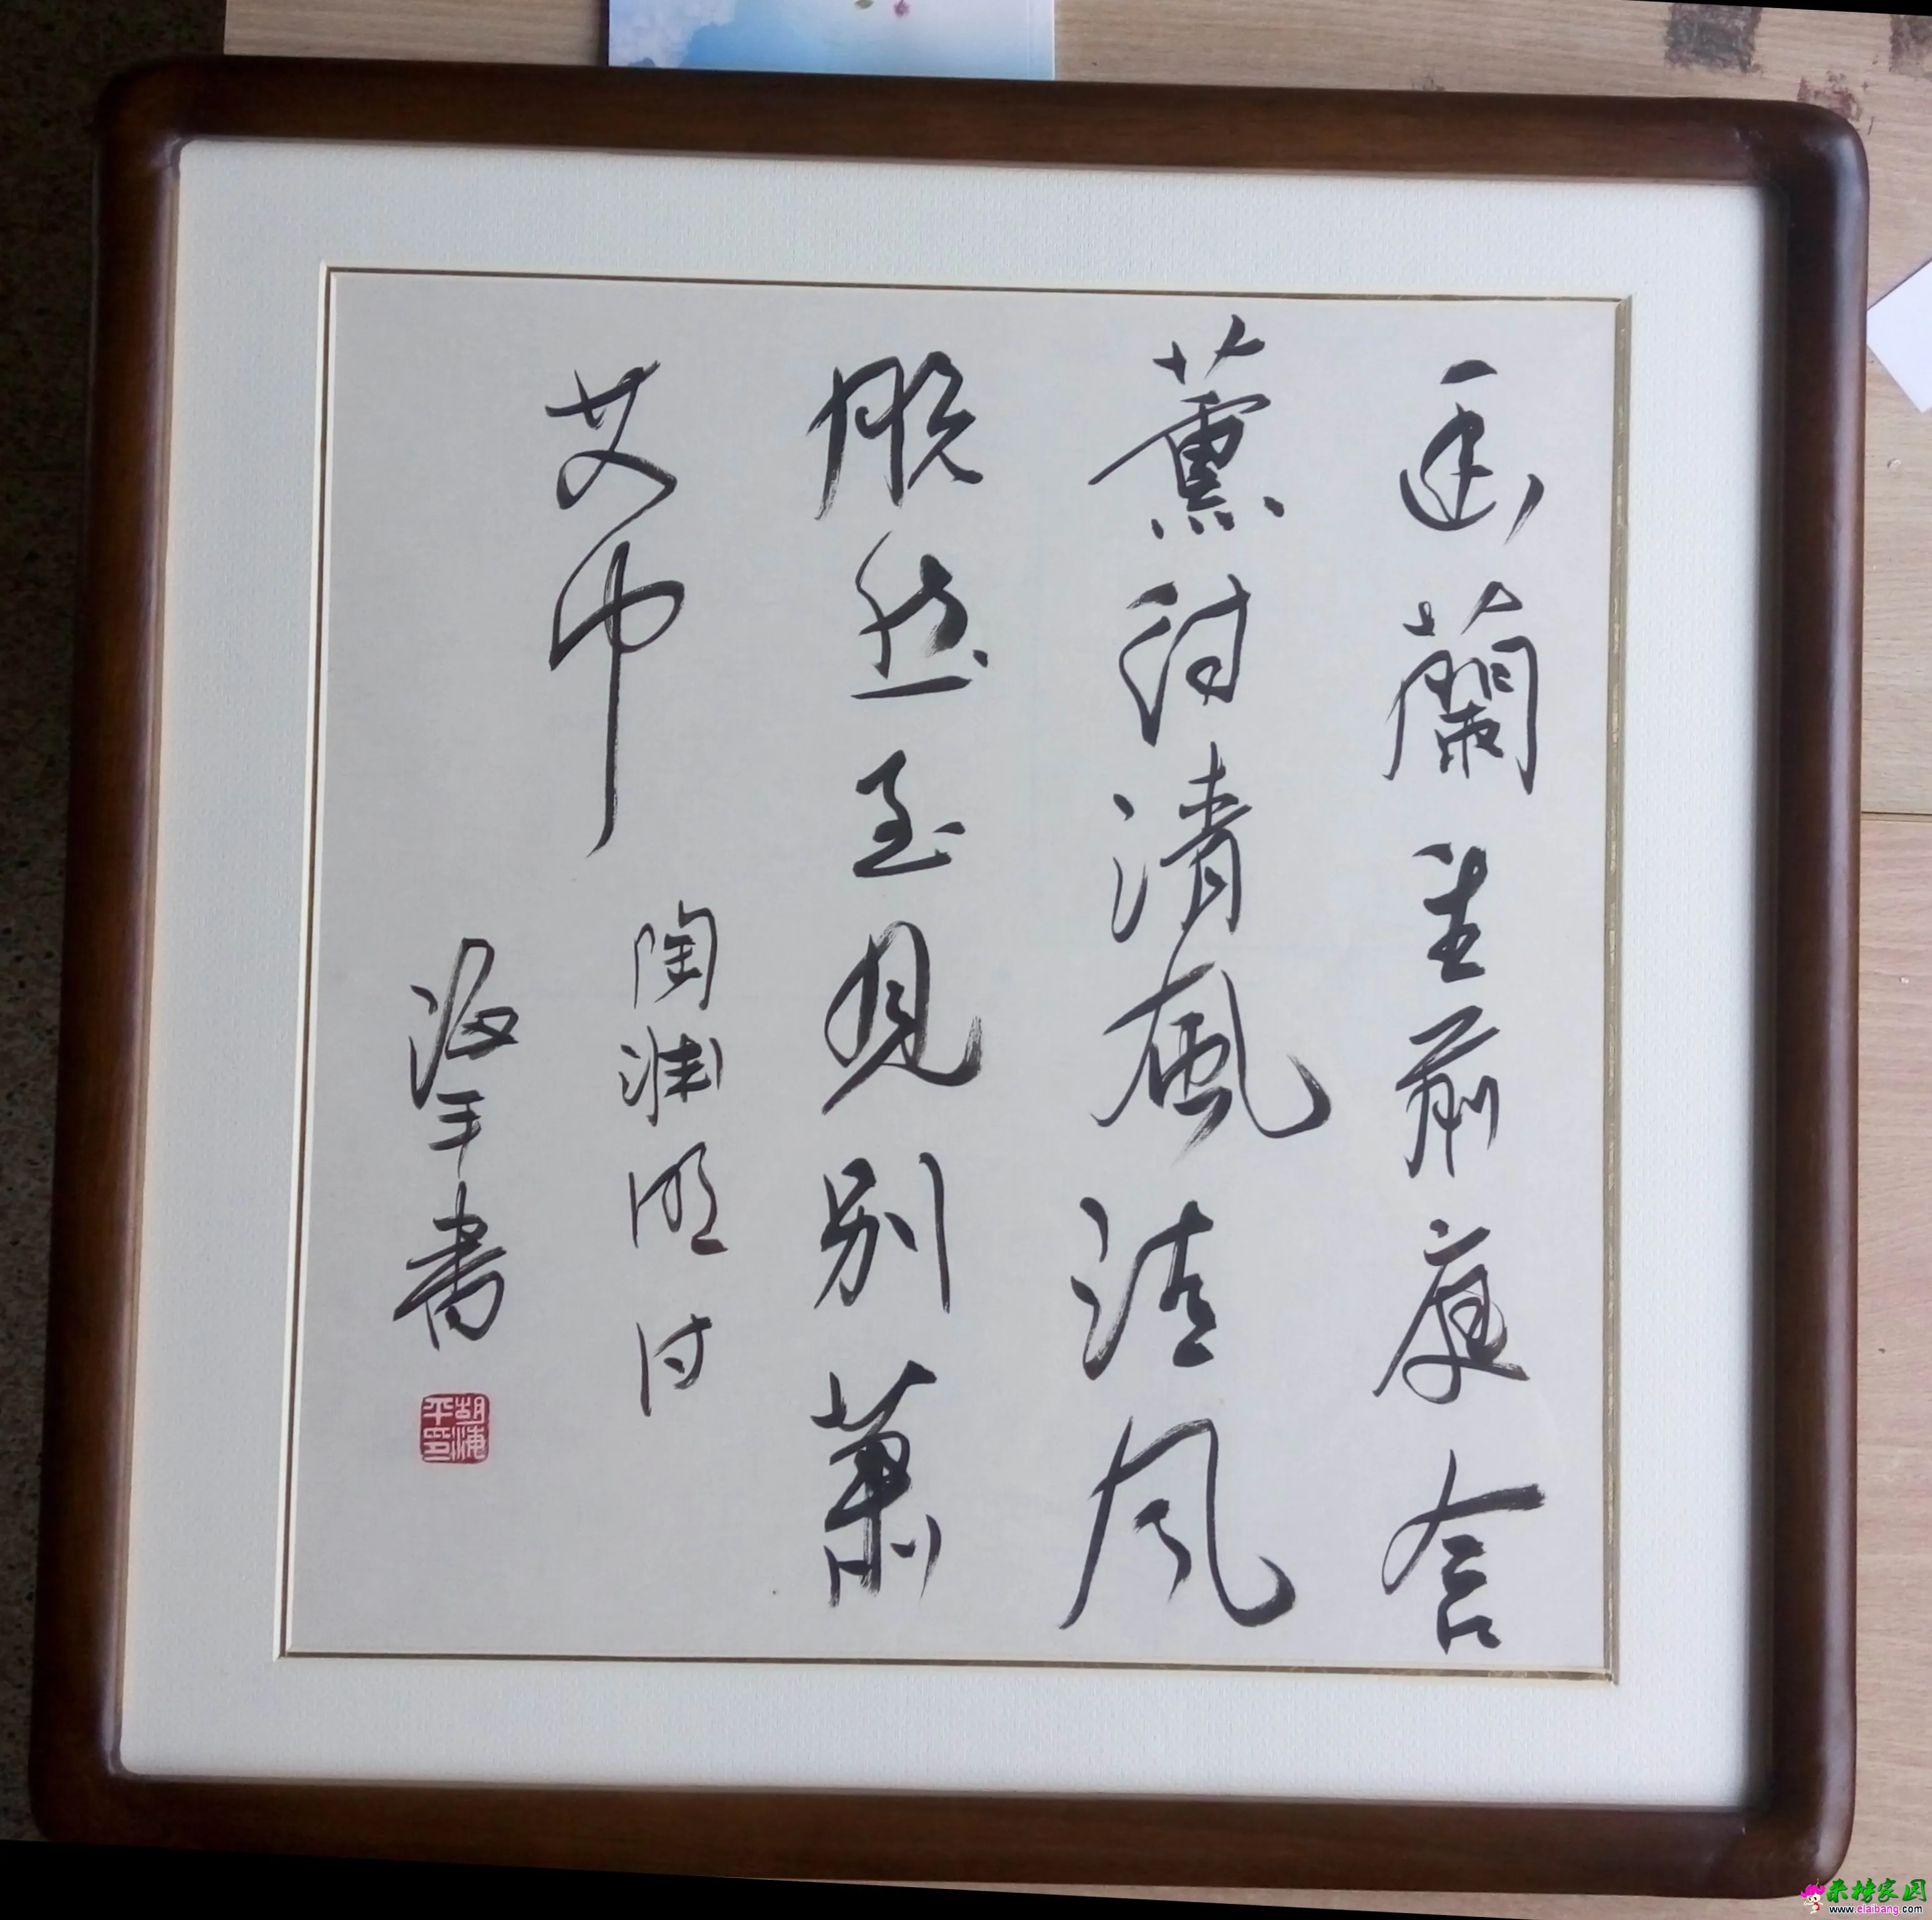 幽蘭生前庭含
薰待清風清风
脱然至見别萧
艾中
陶渊明诗
海平書
胡海
平印
采榜家园
www.elaibang.com